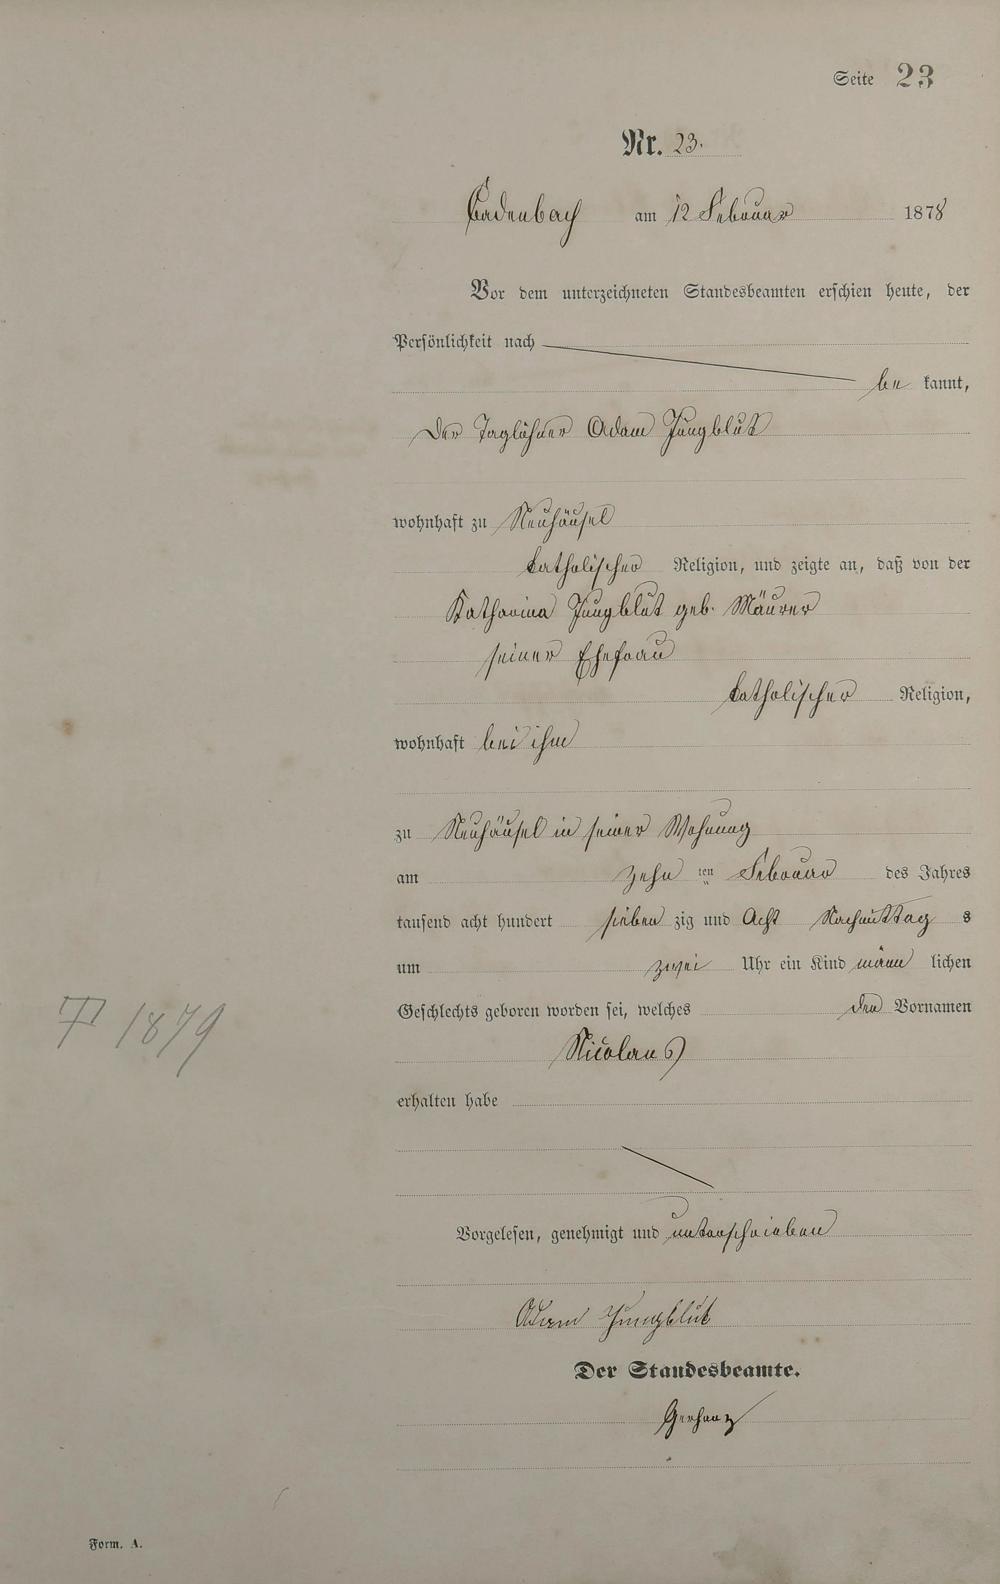 Seite 23
Nr. 23.
Cadenbach am 12 Februar 1878
Vor dem unterzeichneten Standesbeamten erschien heute, der
Persönlichkeit nach
be kannt,
Der Taglöhner Adam Jungblut
wohnhaft zu Neuhäusel
katholischer Religion, und zeigte an, daß von der
Katharina Jungblut geb. Mäurer
seiner Ehefrau
katholischer Religion,
wohnhaft bei ihm
zu Neuhäusel in seiner Wohnung
am zehn ten Februar des Jahres
tausend acht hundert sieben zig und Acht Nachmittag s
um zwei Uhr ein Kind männ lichen
Geschlechts geboren worden sei, welches den Vornamen
Nicolaus
† 1879
erhalten habe
Vorgelesen, genehmigt und unterschrieben
Adam Jungblut
Der Standesbeamte.
Gerharz
Form. A.